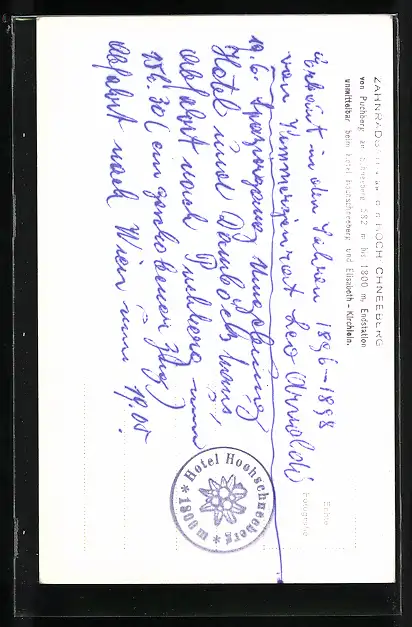 ZAHNRADBAHN AUF DEN HOCHSCHNEEBERG
von Puchberg am Schneeberg 582 m bis 1800 m, Endstation
unmittelbar beim Hotel Hochschneeberg und Elisabeth-Kirchlein.
Erbaut in den Jahren 1896-1898
von Kommerzienrat Leo Arnoldi
19.6. Spaziergang Umgebung
Hotel und Damböckhaus
Abfahrt nach Puchberg um
15h.30 (ein Zug)
Abfahrt nach Wien um 19.05.
Echte
Fotografie
* Hotel Hochschneeberg * 1800 m